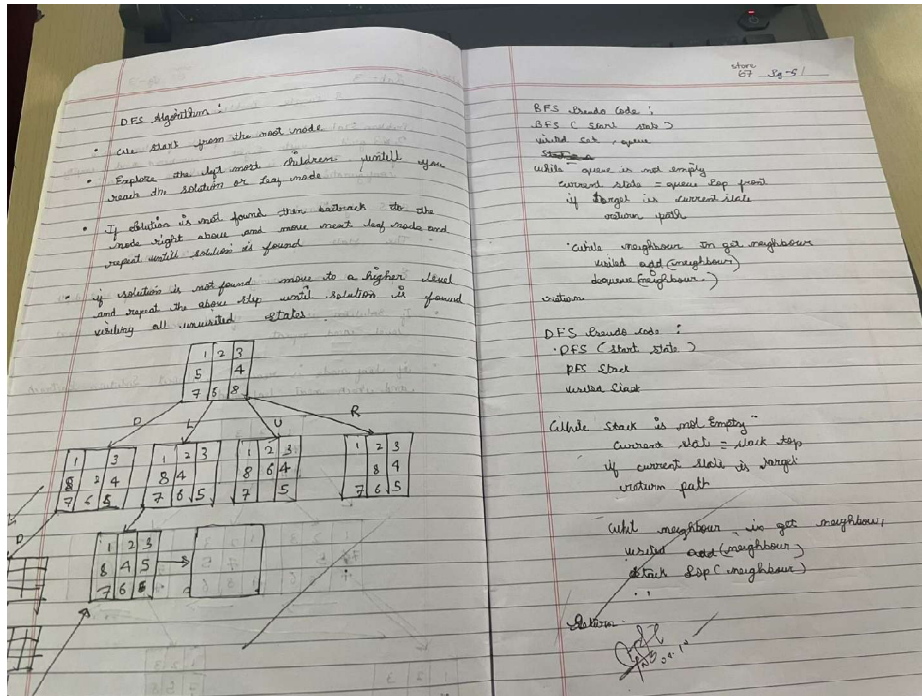 DFS Algorithm :
• we start from the root node
• Explore the left most children untill you
reach the solution or leaf node
• If solution is not found then baktrack to the
node right above and move next leaf node and
repeat untill solution is found
• if solution is not found move to a higher level
and repeat the above step until solution is found
all unvisited states.
1 2 3
5 4
7 6 8
D L U R
1 3
8 2 4
7 6 5
1 2 3
8 4
7 6 5
1 2 3
8 6 4
7 5
1 2 3
8 4
7 6 5
D
1 2 3
8 4 5
7 6 6
store
67 Pg-51
BFS Pseudo Code :
BFS ( start state )
visited set, queue
while queue is not empty
current state = queue pop front
if target is current state
return path
while neighbour in get neighbour
visited add (neighbour)
dequeue (neighbour)
return
DFS Pseudo code :
DFS (start state)
DFS Stack
visited Stack
While Stack is not Empty
current stat = stack top
if current state is target
return path
neighbour in get neighbour,
visited add (neighbour)
stack pop (neighbour)
Return